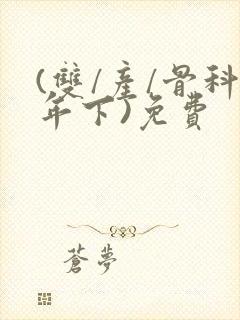 (雙/產/骨科
年下)免費
蒼夢